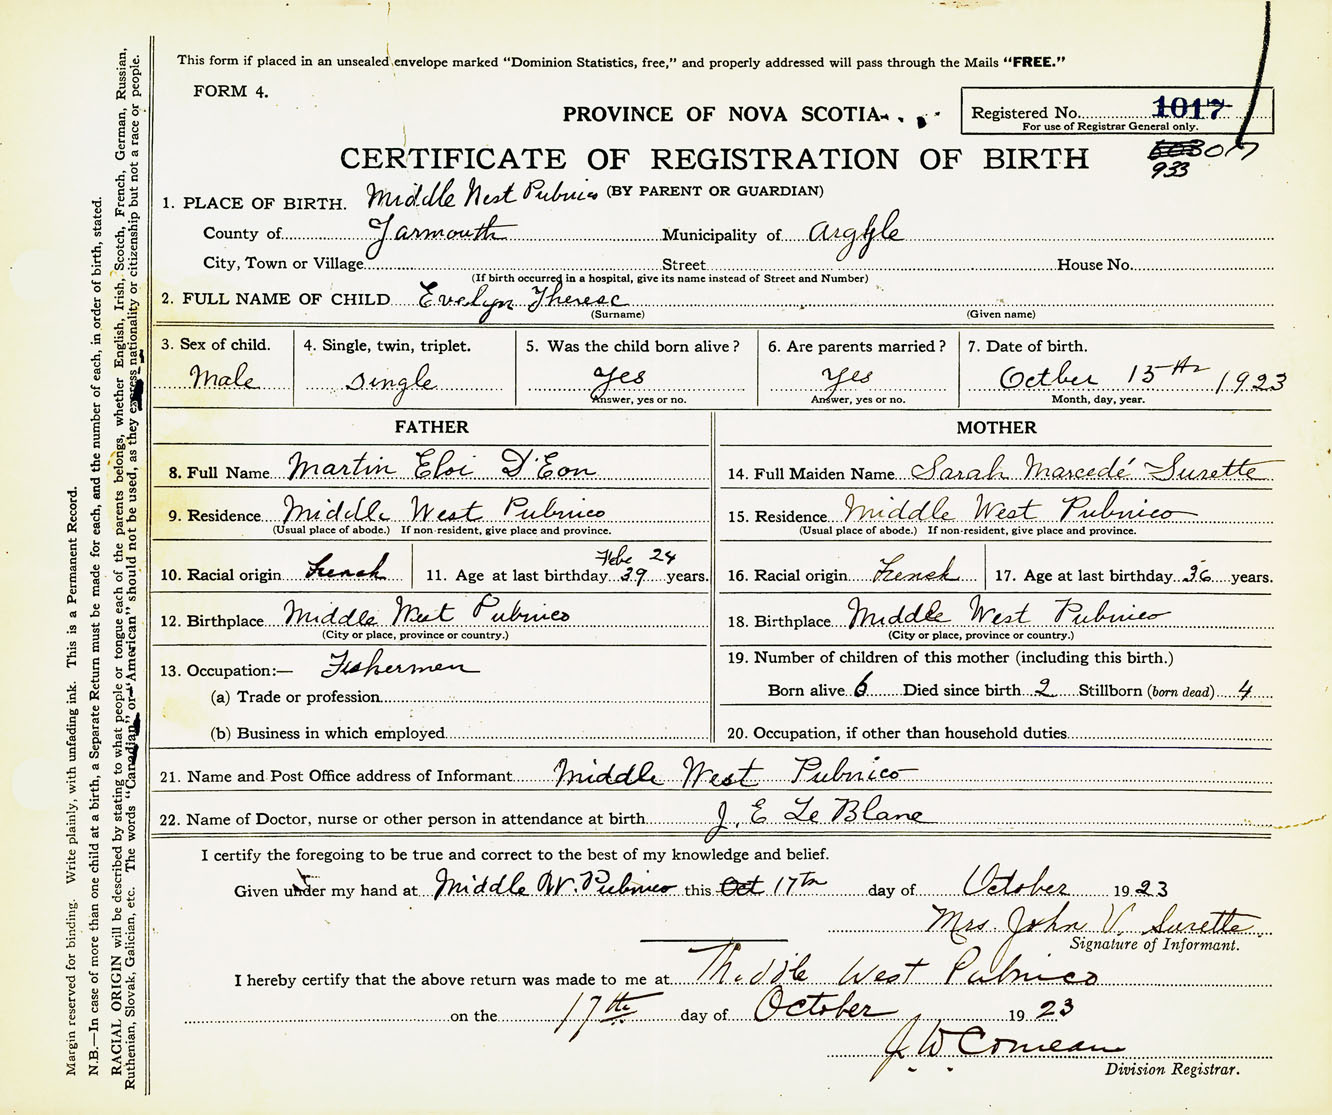 This form if placed in an unsealed envelope marked "Dominion Statistics, free," and properly addressed will pass through the Mails "FREE."
FORM 4.
PROVINCE OF NOVA SCOTIA
Registered No. 1017
For use of Registrar General only.
CERTIFICATE OF REGISTRATION OF BIRTH
933
(BY PARENT OR GUARDIAN)
1. PLACE OF BIRTH. Middle West Pubnico
County of Yarmouth Municipality of Argyle
City, Town or Village Street House No.
(If birth occurred in a hospital, give its name instead of Street and Number)
2. FULL NAME OF CHILD Evelyn Therese
(Surname) (Given name)
3. Sex of child. 4. Single, twin, triplet. 5. Was the child born alive? 6. Are parents married? 7. Date of birth.
Male Single Yes Yes Octber 15th 1923
Answer, yes or no. Answer, yes or no. Month, day, year.
FATHER MOTHER
8. Full Name Martin Eloi D'Eon 14. Full Maiden Name Sarah Marcedé Surette
9. Residence Middle West Pubnico 15. Residence Middle West Pubnico
(Usual place of abode.) If non-resident, give place and province. (Usual place of abode.) If non-resident, give place and province.
24
10. Racial origin French 11. Age at last birthday 39 years. 16. Racial origin French 17. Age at last birthday 36 years.
12. Birthplace Middle West Pubnico 18. Birthplace Middle West Pubnico
(City or place, province or country.) (City or place, province or country.)
13. Occupation:— Fishermen 19. Number of children of this mother (including this birth.)
(a) Trade or profession Born alive 6 Died since birth 2 Stillborn (born dead) 4
(b) Business in which employed 20. Occupation, if other than household duties
21. Name and Post Office address of Informant Middle West Pubnico
22. Name of Doctor, nurse or other person in attendance at birth J. E Le Blanc
I certify the foregoing to be true and correct to the best of my knowledge and belief.
Given under my hand at Middle W. Pubnico this Oct 17th day of October 1923
Mrs John V. Surette
Signature of Informant.
I hereby certify that the above return was made to me at Middle West Pubnico
on the 17th day of October 1923
J. W. Comeau
Division Registrar.
Margin reserved for binding. Write plainly, with unfading ink. This is a Permanent Record.
N.B.—In case of more than one child at a birth, a Separate Return must be made for each, and the number of each, in order of birth, stated.
RACIAL ORIGIN will be described by stating to what people or tongue each of the parents belongs, whether English, Irish, Scotch, French, German, Russian,
Ruthenian, Slovak, Galician, etc. The words "Canadian" or "American" should not be used, as they express nationality or citizenship but not a race or people.